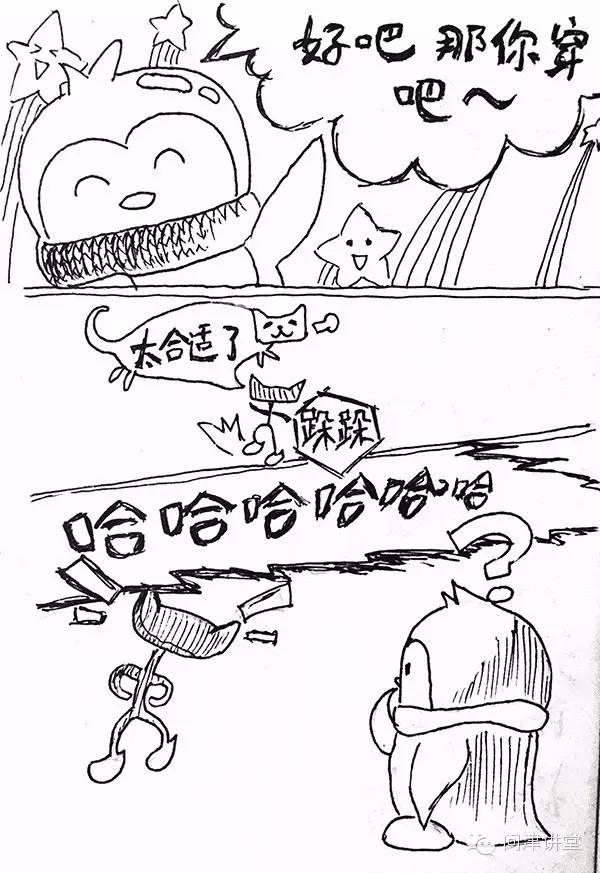 好吧 那你穿
吧～
太合适了
跺跺
哈哈哈哈哈哈
?
问津讲堂